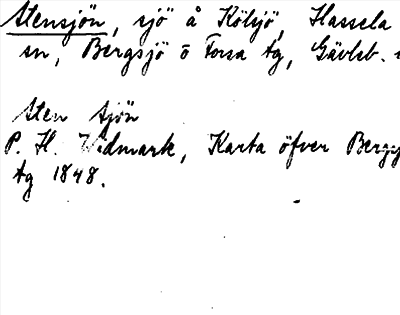 Stensjön, sjö å Kölsjö, Hassela
sn, Bergsjö o Forsa tg, Gävleb.
Sten sjön
P. H. Widmark, Karta öfver Bergsj
tg 1848.